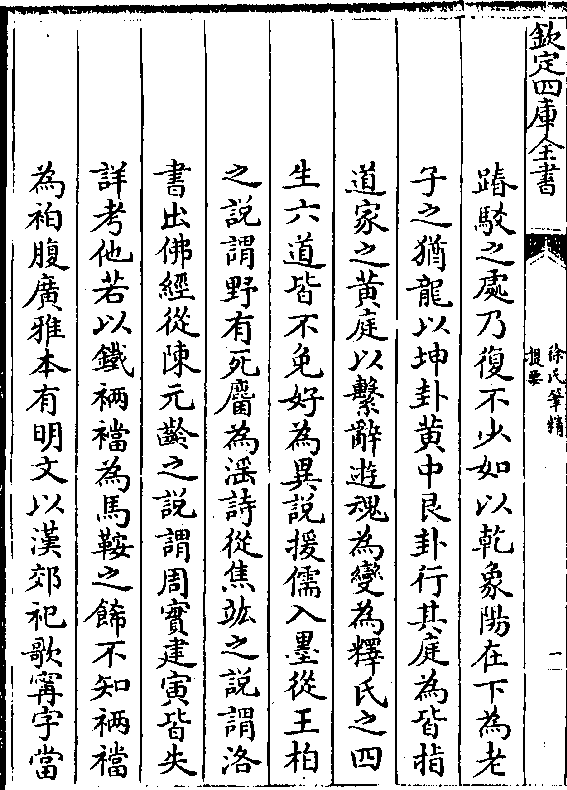 欽定四庫全書
徐氏筆精
提要
二
踳駁之處乃復不少如以乾象陽在下為老
子之猶龍以坤卦黄中艮卦行其庭為皆指
道家之黄庭以繫辭遊魂為變為釋氏之四
生六道皆不免好為異說援儒入墨從王柏
之說謂野有死麕為滛詩從焦竑之說謂洛
書出佛經從陳元齡之說謂周實建寅皆失
詳考他若以鐵裲襠為馬鞍之餙不知裲襠
為袙腹廣雅本有明文以漢郊祀歌寗字當